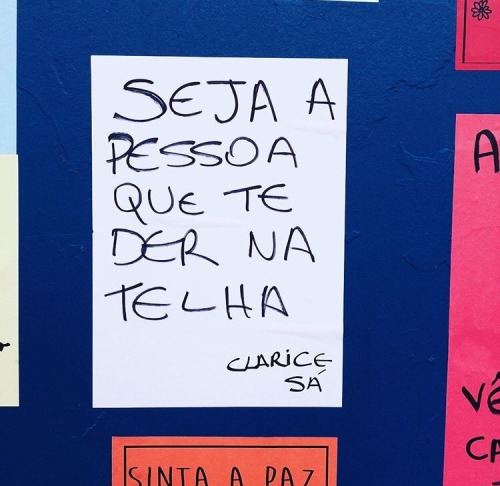 SEJA A
PESSOA
QUE TE
DER NA
TELHA
CLARICE
SÁ
SINTA A PAZ
A
VÊ
CA